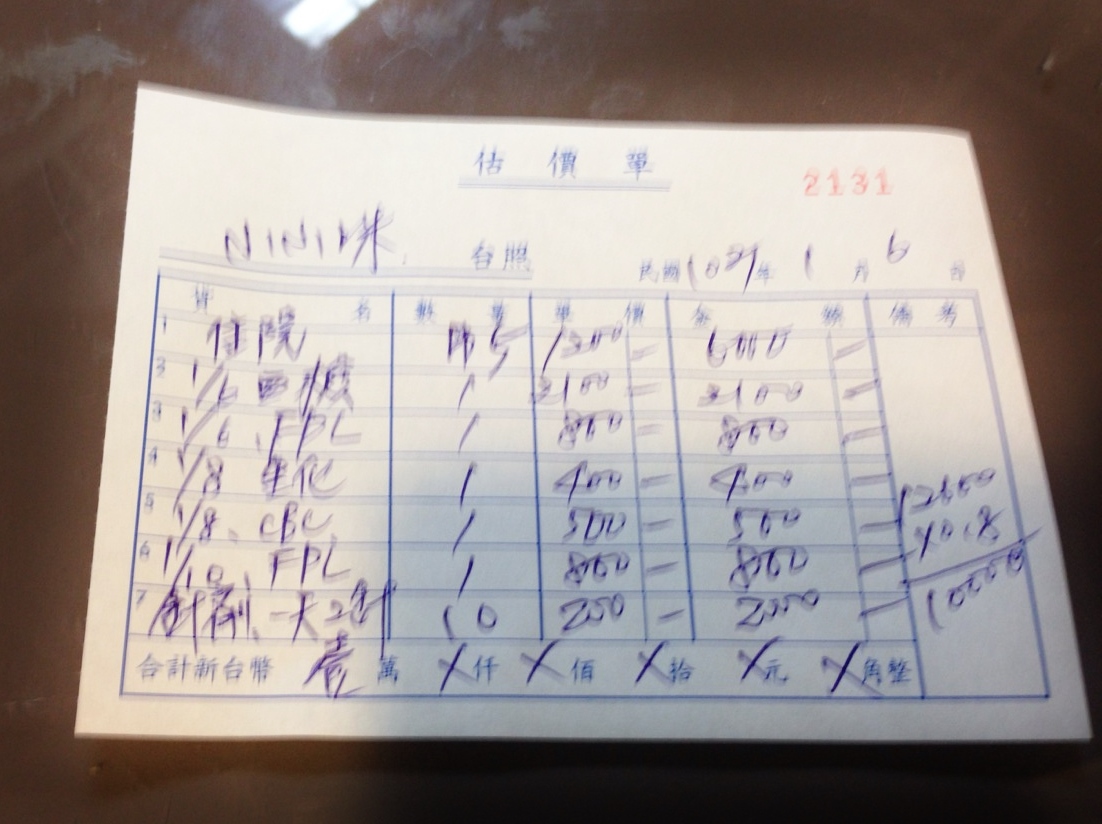 估價單
2131
NINI 台照 民國 年 1 月 6 日
貨名 數量 單價 金額 備考
1 住院 5 1200 — 6000 —
2 1/6 1 2100 — 2100 —
3 1/6. FPL 1 800 — 800 —
4 1/8 生化 1 400 — 400 — 12600
5 1/8. CBC 1 500 — 500 — X0.8
6 1/10. FPL 1 800 — 800 — 10000
7 針劑. 一天2針 10 200 — 2000 —
合計新台幣 壹 萬 X仟 X佰 X拾 X元 X角整